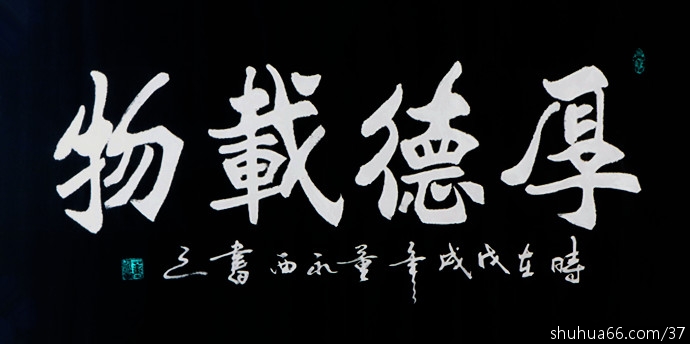 厚德載物
時在戊戌年董永西書之
shuhua66.com/37